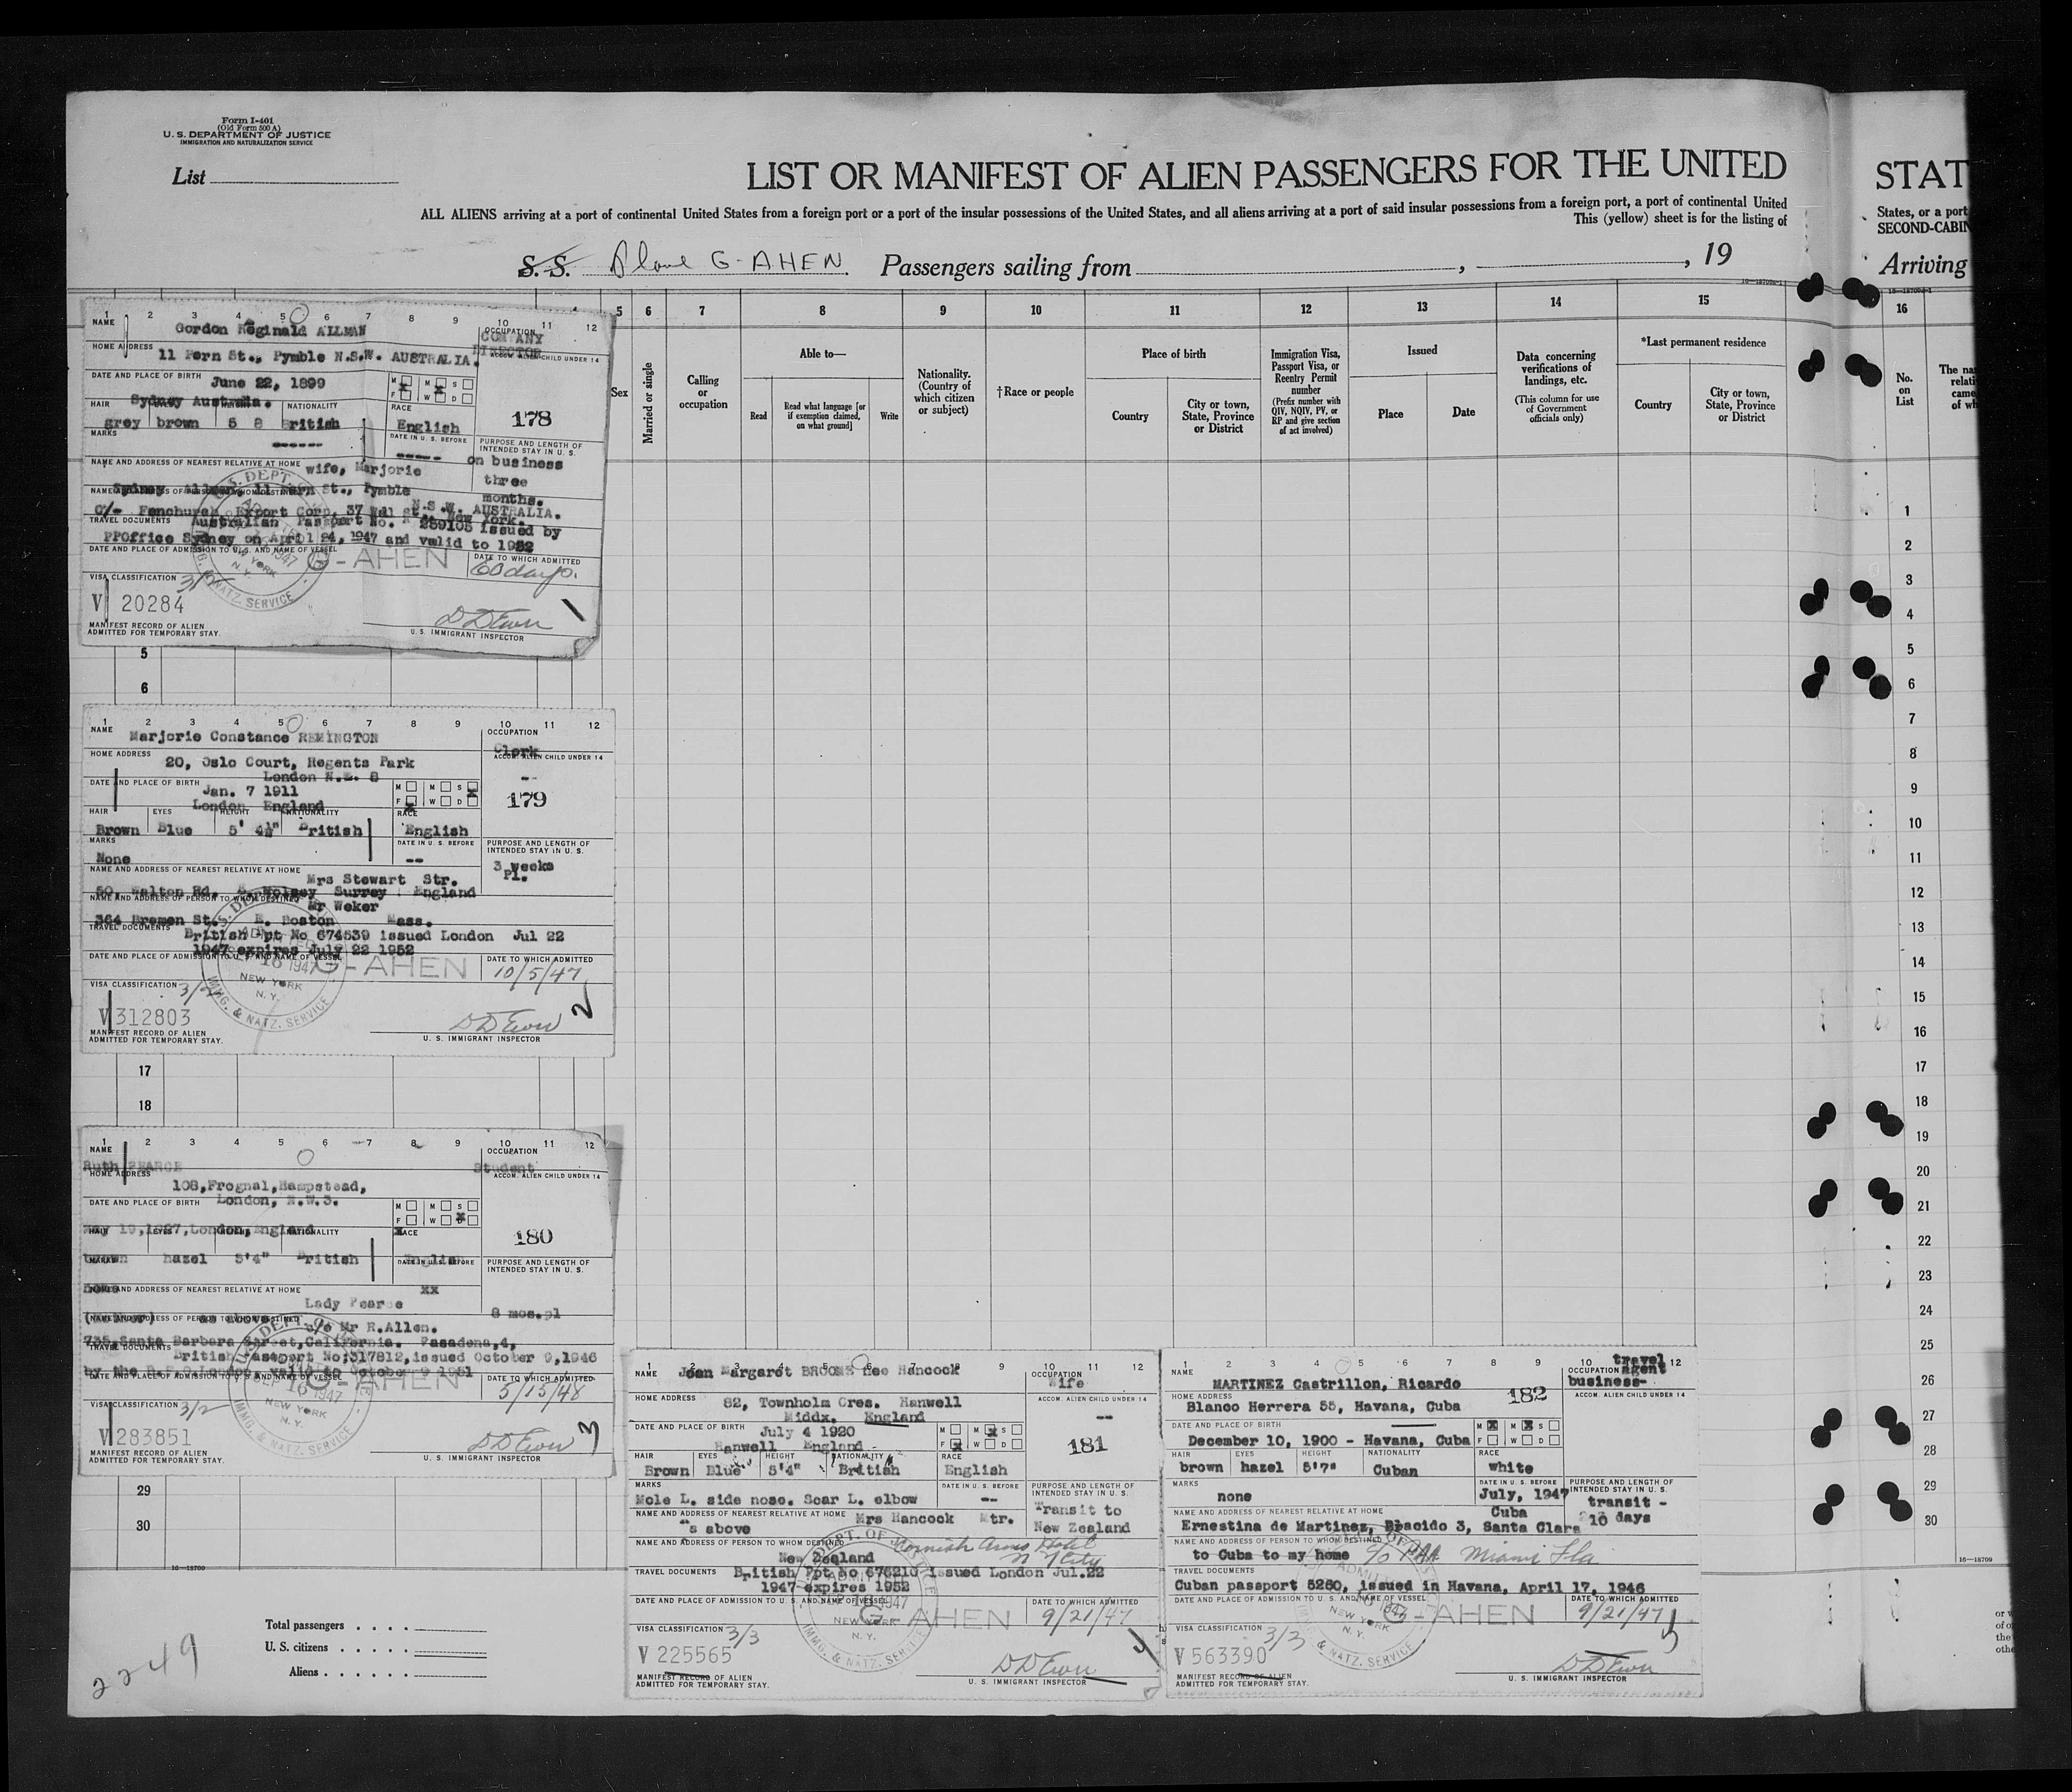 Form I-401
(Old Form 500 A)
U. S. DEPARTMENT OF JUSTICE
IMMIGRATION AND NATURALIZATION SERVICE
List
LIST OR MANIFEST OF ALIEN PASSENGERS FOR THE UNITED
STAT
ALL ALIENS arriving at a port of continental United States from a foreign port or a port of the insular possessions of the United States, and all aliens arriving at a port of said insular possessions from a foreign port, a port of continental United
States, or a port
This (yellow) sheet is for the listing of
SECOND-CABIN
S. S. Plane G-AHEN Passengers sailing from , , 19
Arriving
5 6 7 8 9 10 11 12 13 14 15 16
Sex
Married or single
Calling or occupation
Able to—
Read
Read what language [or if exemption claimed, on what ground]
Write
Nationality. (Country of which citizen or subject)
†Race or people
Place of birth
Country
City or town, State, Province or District
Immigration Visa, Passport Visa, or Reentry Permit number
(Prefix number with QIV, NQIV, PV, or RP and give section of act involved)
Issued
Place
Date
Data concerning verifications of landings, etc.
(This column for use of Government officials only)
*Last permanent residence
Country
City or town, State, Province or District
No. on List
1 2 3 4 5 6 7 8 9 10 11 12
NAME Gordon Reginald ALLMAN
OCCUPATION COMPANY DIRECTOR
HOME ADDRESS 11 Fern St., Pymble N.S.W. AUSTRALIA.
ACCOM. ALIEN CHILD UNDER 14
DATE AND PLACE OF BIRTH June 22, 1899
Sydney Australia.
M M S
F W D
178
HAIR NATIONALITY RACE
grey brown 5 8 British English
MARKS ------
DATE IN U. S. BEFORE -----
PURPOSE AND LENGTH OF INTENDED STAY IN U. S.
on business three months.
NAME AND ADDRESS OF NEAREST RELATIVE AT HOME wife, Marjorie
Sydney Allman, 11 Fern St., Pymble
N.S.W. AUSTRALIA.
C/- Fenchurch Export Corp, 37 Wall st. New York.
TRAVEL DOCUMENTS Australian Passport No. 259105 issued by
PPOffice Sydney on April 24, 1947 and valid to 1952
DATE AND PLACE OF ADMISSION TO U. S. AND NAME OF VESSEL
G-AHEN
DATE TO WHICH ADMITTED
60 days.
VISA CLASSIFICATION 3/2
V 20284
MANIFEST RECORD OF ALIEN
ADMITTED FOR TEMPORARY STAY.
U. S. IMMIGRANT INSPECTOR
1
5
6
1 2 3 4 5 6 7 8 9 10 11 12
NAME Marjorie Constance REMINGTON
OCCUPATION Clerk
HOME ADDRESS 20, Oslo Court, Regents Park
London N.W. 8
ACCOM. ALIEN CHILD UNDER 14
--
DATE AND PLACE OF BIRTH Jan. 7 1911
London England
M M S
F W D
179
HAIR EYES HEIGHT NATIONALITY RACE
Brown Blue 5' 4½" British English
MARKS None
DATE IN U. S. BEFORE --
PURPOSE AND LENGTH OF INTENDED STAY IN U. S.
3 weeks
Pl.
NAME AND ADDRESS OF NEAREST RELATIVE AT HOME Mrs Stewart Str.
50, Walton Rd. E. Molsey Surrey England
NAME AND ADDRESS OF PERSON TO WHOM DESTINED Mr Weker
364 Bremen St. E. Boston Mass.
TRAVEL DOCUMENTS British Ppt No 674539 issued London Jul 22
1947 expires July 22 1952
DATE AND PLACE OF ADMISSION TO U. S. AND NAME OF VESSEL
G-AHEN
DATE TO WHICH ADMITTED
10/5/47
NEW YORK
N. Y.
IMMG. & NATZ. SERVICE
VISA CLASSIFICATION 3/2
V 312803
MANIFEST RECORD OF ALIEN
ADMITTED FOR TEMPORARY STAY.
U. S. IMMIGRANT INSPECTOR
2
17
18
1 2 3 4 5 6 7 8 9 10 11 12
NAME Ruth PEARCE
OCCUPATION Student
HOME ADDRESS 108, Frognal, Hampstead,
London, N.W.3.
ACCOM. ALIEN CHILD UNDER 14
DATE AND PLACE OF BIRTH
May 19, 1927, London, England
M M S
F W D
180
HAIR EYES NATIONALITY RACE
brown hazel 5'4" British English
MARKS
DATE IN U. S. BEFORE
xx
PURPOSE AND LENGTH OF INTENDED STAY IN U. S.
8 mos.pl
NAME AND ADDRESS OF NEAREST RELATIVE AT HOME
Lady Pearce
(mother) as above
NAME AND ADDRESS OF PERSON TO WHOM DESTINED c/o Mr R.Allen.
735, Santa Barbara Street, California. Pasadena, 4,
TRAVEL DOCUMENTS British Passport No; 317812, issued October 9, 1946
by the London valid to October 9 1951
DATE AND PLACE OF ADMISSION TO U. S. AND NAME OF VESSEL
G-AHEN
DATE TO WHICH ADMITTED
5/15/48
SEP 16 1947
NEW YORK
N. Y.
IMMG. & NATZ. SERVICE
VISA CLASSIFICATION 3/2
V 283851
MANIFEST RECORD OF ALIEN
ADMITTED FOR TEMPORARY STAY.
U. S. IMMIGRANT INSPECTOR
3
29
30
16—18709
1 2 3 4 5 6 7 8 9 10 11 12
NAME Joan Margaret BROOME nee Hancock
OCCUPATION Wife
HOME ADDRESS 82, Townholm Cres. Hanwell
Middx. England
ACCOM. ALIEN CHILD UNDER 14
--
DATE AND PLACE OF BIRTH July 4 1920
Hanwell England
M M S
F W D
181
HAIR EYES HEIGHT NATIONALITY RACE
Brown Blue 5'4" British English
MARKS
Mole L. side nose. Scar L. elbow
DATE IN U. S. BEFORE --
PURPOSE AND LENGTH OF INTENDED STAY IN U. S.
Transit to New Zealand
NAME AND ADDRESS OF NEAREST RELATIVE AT HOME Mrs Hancock Mtr.
As above
NAME AND ADDRESS OF PERSON TO WHOM DESTINED Cornish Arms Hotel
New Zealand N Y City
TRAVEL DOCUMENTS British Ppt No 676210 issued London Jul.22
1947 expires 1952
DATE AND PLACE OF ADMISSION TO U. S. AND NAME OF VESSEL
G-AHEN
DATE TO WHICH ADMITTED
9/21/47
NEW YORK
N. Y.
IMMG. & NATZ. SERVICE
VISA CLASSIFICATION 3/3
V 225565
MANIFEST RECORD OF ALIEN
ADMITTED FOR TEMPORARY STAY.
U. S. IMMIGRANT INSPECTOR
1 2 3 4 5 6 7 8 9 10 12
NAME MARTINEZ Castrillon, Ricardo
182
OCCUPATION travel agent
business-
HOME ADDRESS Blanco Herrera 55, Havana, Cuba
ACCOM. ALIEN CHILD UNDER 14
DATE AND PLACE OF BIRTH
December 10, 1900 - Havana, Cuba
M M S
F W D
HAIR EYES HEIGHT NATIONALITY RACE
brown hazel 5'7" Cuban white
MARKS none
DATE IN U. S. BEFORE July, 1947
PURPOSE AND LENGTH OF INTENDED STAY IN U. S.
transit -
10 days
NAME AND ADDRESS OF NEAREST RELATIVE AT HOME Cuba
Ernestina de Martinez, Placido 3, Santa Clara
NAME AND ADDRESS OF PERSON TO WHOM DESTINED
to Cuba to my home c/o PAA Miami Fla
TRAVEL DOCUMENTS
Cuban passport 5260, issued in Havana, April 17, 1946
DATE AND PLACE OF ADMISSION TO U. S. AND NAME OF VESSEL
G-AHEN
DATE TO WHICH ADMITTED
9/21/47
NEW YORK
N. Y.
& NATZ. SERVICE
VISA CLASSIFICATION 3/3
V 563390
MANIFEST RECORD OF ALIEN
ADMITTED FOR TEMPORARY STAY.
U. S. IMMIGRANT INSPECTOR
5
Total passengers
U. S. citizens
Aliens
2249
1
2
3
4
5
6
7
8
9
10
11
12
13
14
15
16
17
18
19
20
21
22
23
24
25
26
27
28
29
30
16—18709